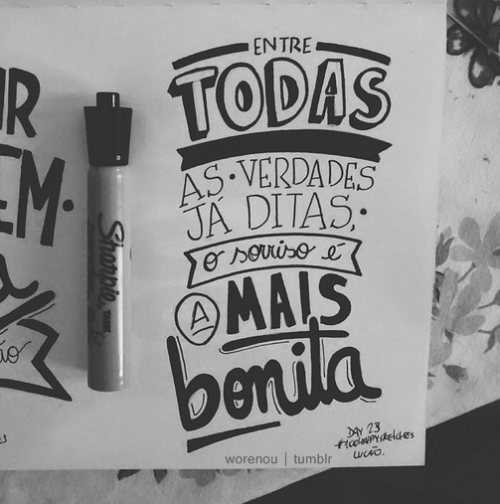 ENTRE
TODAS
AS · VERDADES
JÁ DITAS, ·
o sorriso é
A MAIS
bonita
DAY 23
LUCÃO.
worenou | tumblr
Sharpie
EM ·
ão